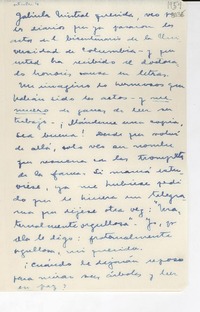 1954
Gabriela Mistral querida, veo por
los diarios que ya pasaron los
actos del bicentenario de la Uni-
versidad de Columbia - y que
usted ha recibido el doctora
do honoris causa en letras.
Me imagino lo hermosos que
habrán sido los actos - y me
muero de ganas de leer su
trabajo - ¡Mándeme una copia,
sea buena! Desde que volví
de allá, solo veo su nombre
que resuena en las trompetas
de la fama. Si mamá estu
viese, ya me hubiese pedi
do que le hiciera un telegra
ma que dijese otra vez: "Ma
ternalmente orgullosa". Yo, yo
se lo digo: fraternalmente
orgullosa, mi querida.
¿Cuándo la dejarán reposo
para mirar sus árboles y leer
en paz?